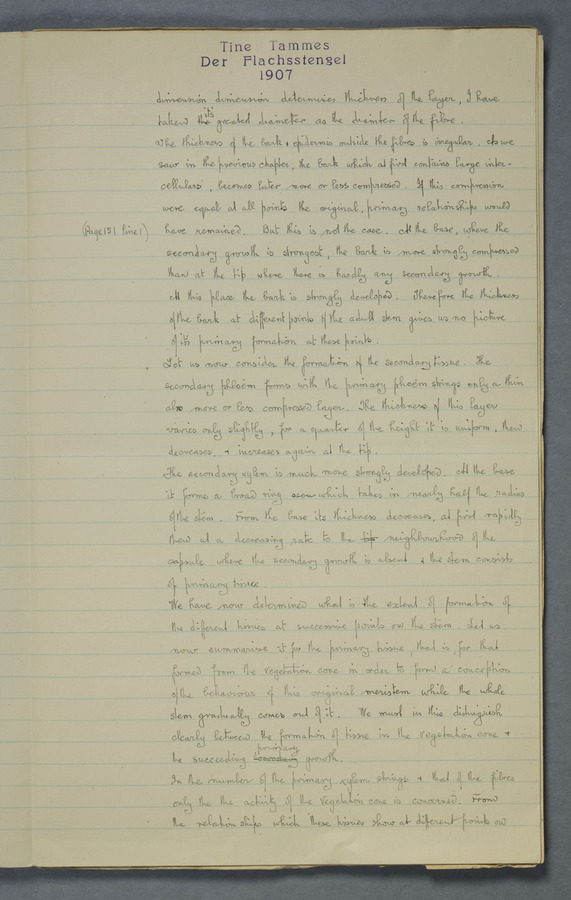 Tine Tammes
Der Flachsstengel
1907
dimension dimension determines thickness of the layer, I have
taken the its greatest diameter as the diameter of the fibre.
The thickness of the bark & epidermis outside the fibres is irregular. As we
saw in the previous chapter, the bark which at first contains large inter-
cellulars, becomes later more or less compressed. If this compression
were equal at all points the original, primary relationships would
(Page 151 line 1) have remained. But this is not the case. At the base, where the
secondary growth is strongest, the bark is more strongly compressed
than at the tip where there is hardly any secondary growth.
At this place the bark is strongly developed. Therefore the thickness
of the bark at different points of the adult stem gives us no picture
of its primary formation at these points.
Let us now consider the formation of the secondary tissue. The
secondary phloem forms with the primary phoem strings only a thin
also more or less compressed layer. The thickness of this layer
varies only slightly, for a quarter of the height it is uniform, then
decreases, & increases again at the tip.
The secondary xylem is much more strongly developed. At the base
it forms a broad ring which takes in nearly half the radius
of the stem. From the base its thickness decreases, at first rapidly
then at a decreasing rate to the tip neighbourhood of the
capsule where the secondary growth is absent & the stem consists
of primary tissue.
We have now determined what is the extent of formation of
the different tissues at successive points on the stem. Let us
now summarise it for the primary tissue, that is, for that
formed from the vegetation cone in order to form a conception
of the behaviour of this original meristem while the whole
stem gradually comes out of it. We must in this distinguish
clearly between the formation of tissue in the vegetation cone &
the succeeding secondary primary growth.
In the number of the primary xylem strings & that of the fibres
only the the activity of the vegetation cone is concerned. From
the relationships which these tissues show at different points on